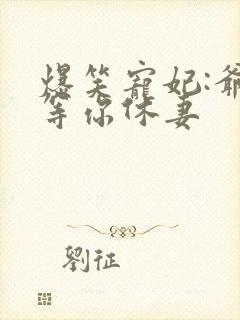 爆笑寵妃:爺
等你休妻
劉征